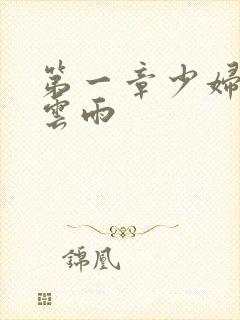 第一章少婦
雲雨
錦凰